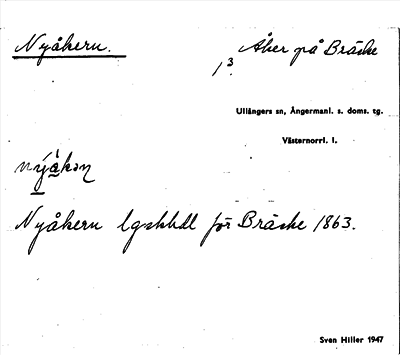 Nyåkern. Åker på Bräcke
1/3.
Ullångers sn, Ångermanl. s. doms. tg.
Västernorrl. l.
Nyåkern lgskhdl för Bräcke 1863.
Sven Hiller 1947